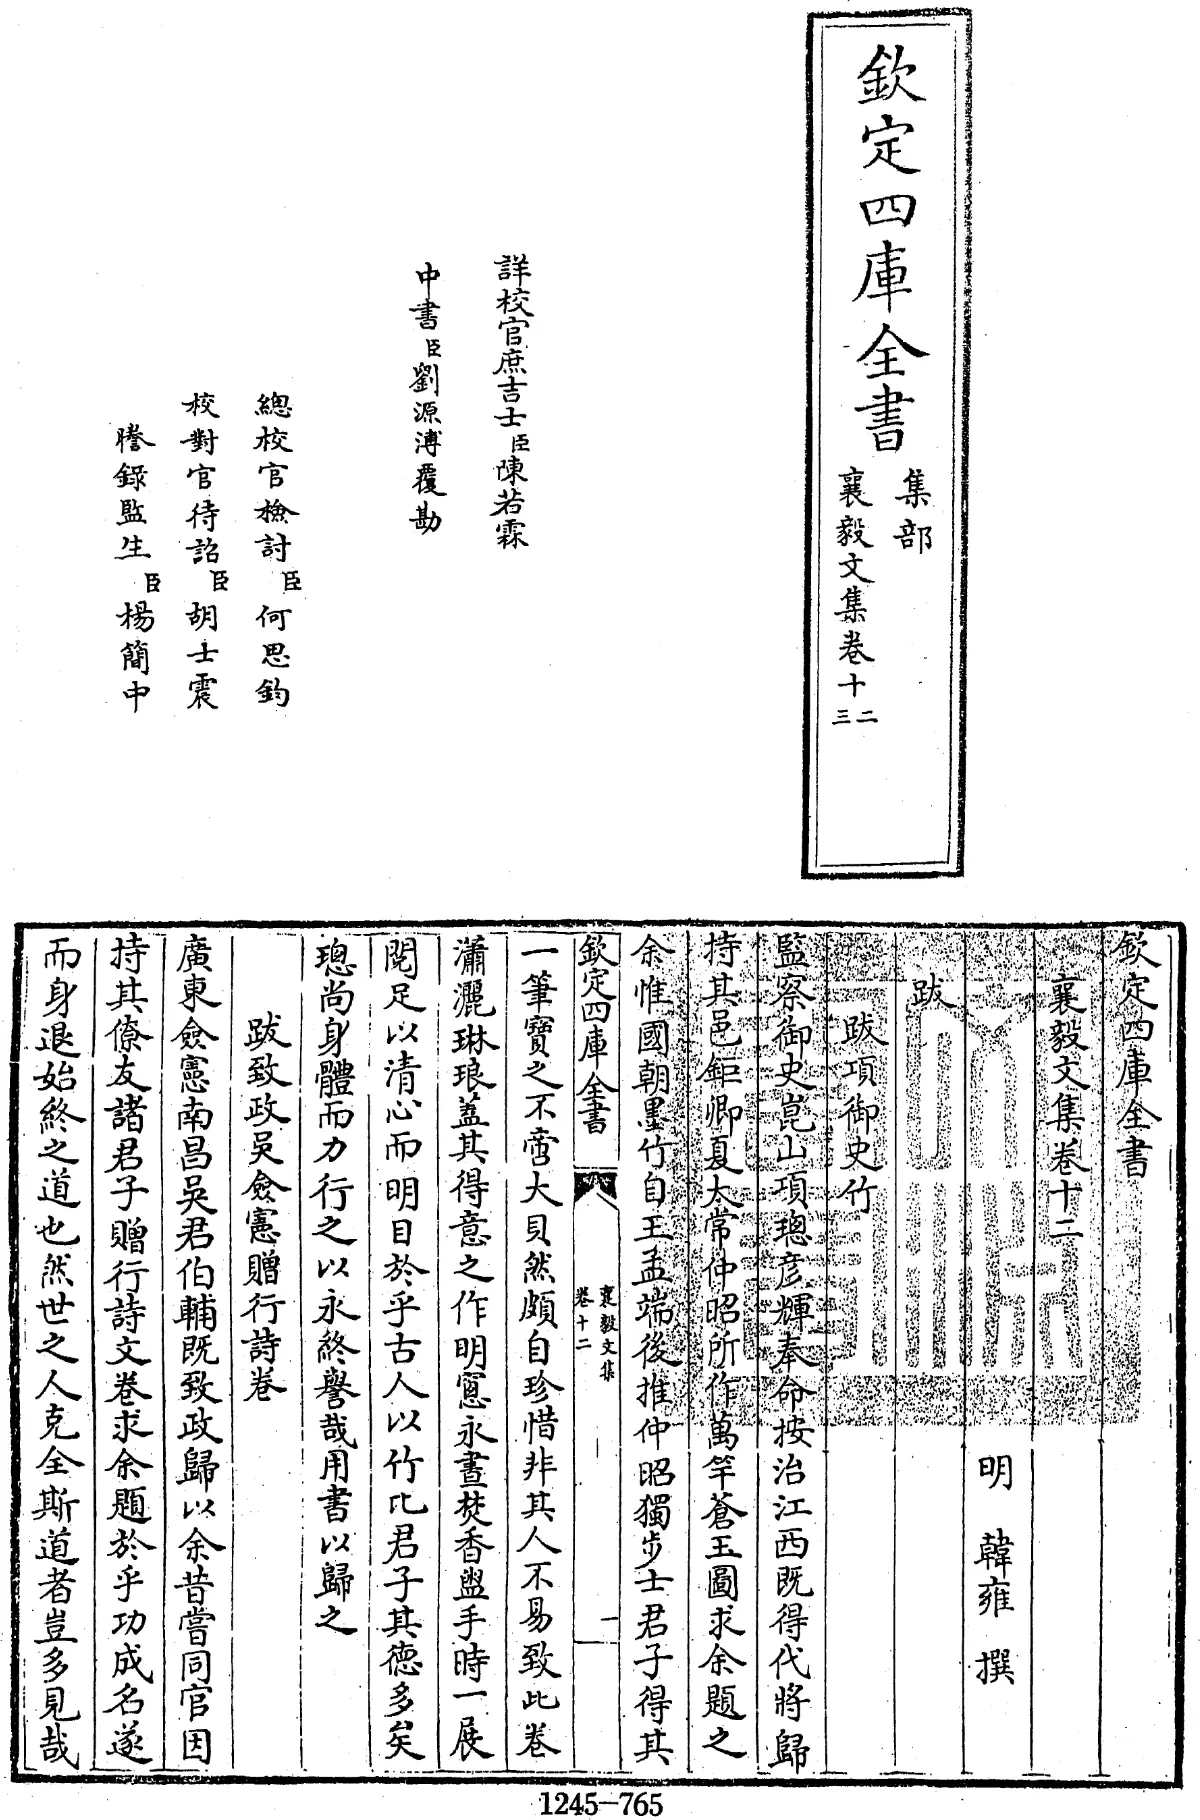 欽定四庫全書
集部
襄毅文集卷十二
三
詳校官庶吉士臣陳若霖
中書臣劉源溥覆勘
總校官檢討臣何思鈞
校對官待詔臣胡士震
謄錄監生臣楊簡中
欽定四庫全書
襄毅文集卷十二
明 韓雍 撰
跋
跋項御史竹
監察御史崑山項璁彥輝奉命按治江西既得代將歸
持其邑鉅卿夏太常仲昭所作萬竿蒼玉圖求余題之
余惟國朝墨竹自王孟端後推仲昭獨步士君子得其
欽定四庫全書
襄毅文集
卷十二
一
一筆寶之不啻大貝然頗自珍惜非其人不易致此卷
瀟灑琳琅蓋其得意之作明窻永晝焚香盥手時一展
閱足以清心而明目於乎古人以竹比君子其德多矣
璁尚身體而力行之以永終譽哉用書以歸之
跋致政吳僉憲贈行詩卷
廣東僉憲南昌吳君伯輔既致政歸以余昔嘗同官因
持其僚友諸君子贈行詩文卷求余題於乎功成名遂
而身退始終之道也然世之人克全斯道者豈多見哉
1245-765